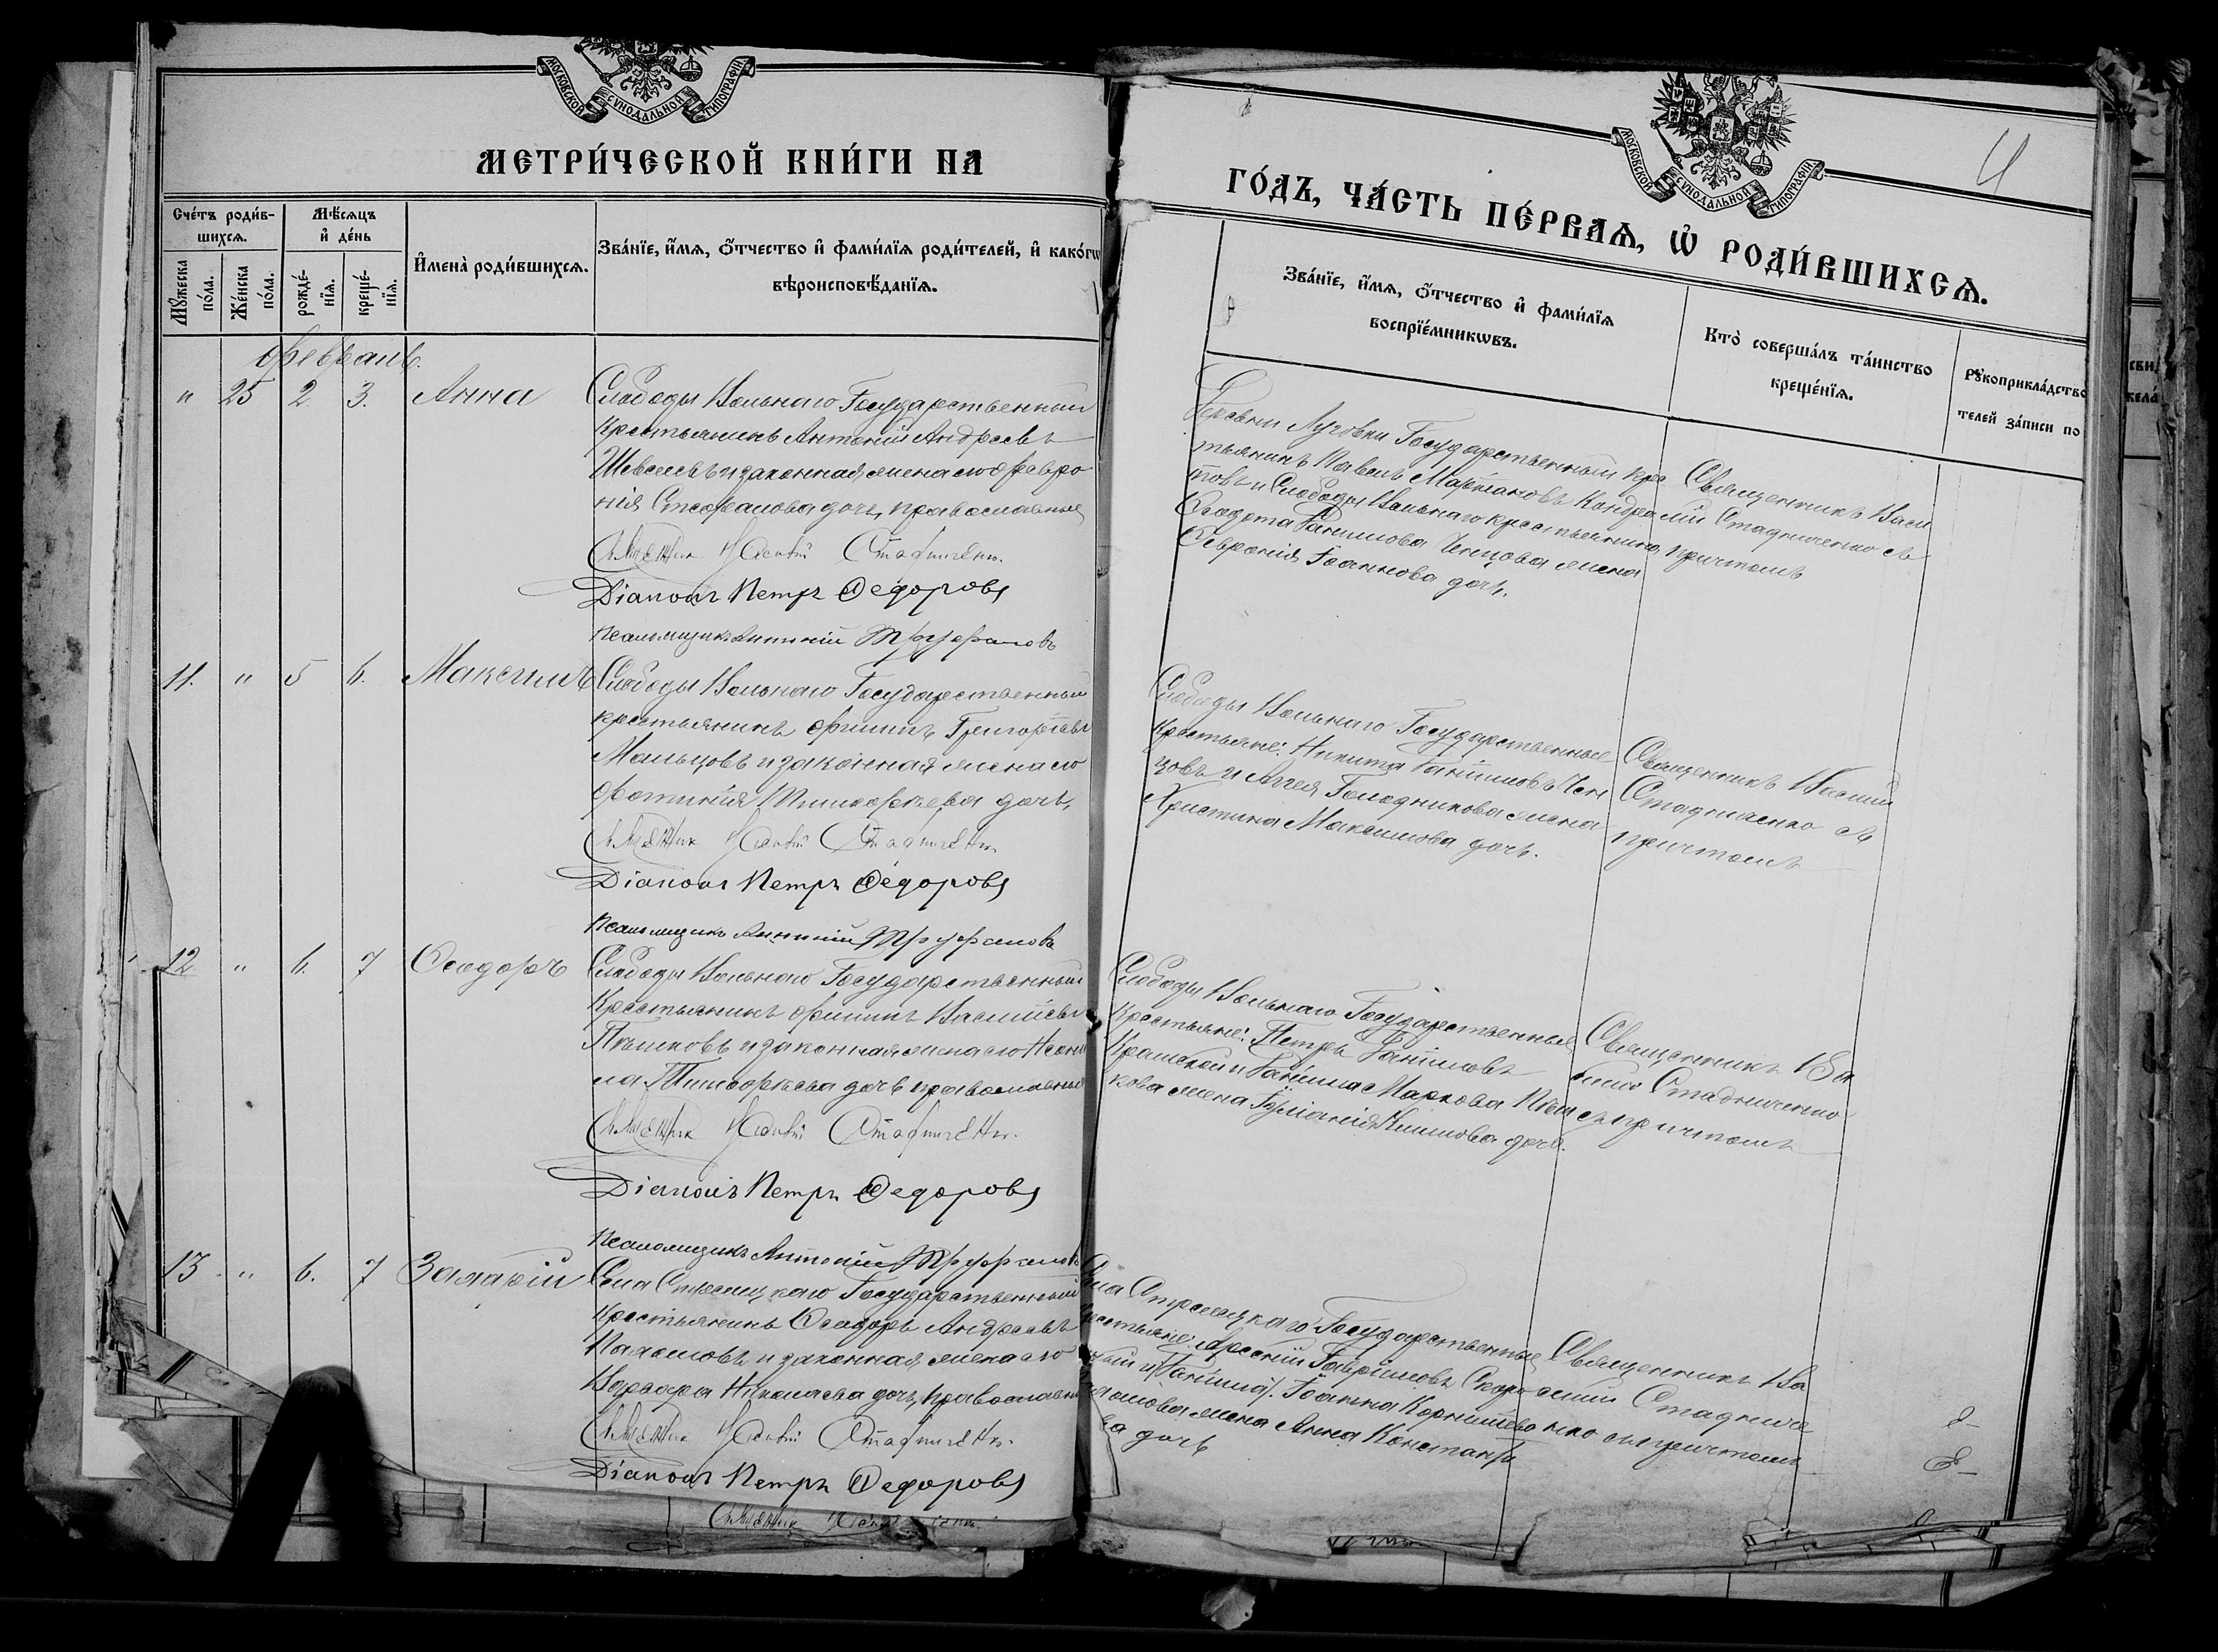 МОСКОВСКОЙ СѴНОДАЛЬНОЙ ТИПОГРАФІИ
МЕТРИ́ЧЕСКОЙ КНИ́ГИ НА
Сче́тъ роди́в-
шихсѧ.
Мѣ́сѧцъ
и҆ де́нь
И҆мена̀ роди́вшихсѧ.
Зва́нїе, и҆́мѧ, ѻ҆́тчество и҆ фами́лїѧ роди́телей, и҆ како́гѡ
вѣроисповѣ́данїѧ.
Мꙋ́жеска
по́ла.
Же́нска
по́ла.
рожде́-
нїѧ.
креще́-
нїѧ.
Февраль.
" 25 2 3. Анна
Слободы Вольнаго Государственный
Крестьянинъ Антоній Андреевъ
и законная жена его Февро
нія Стефанова дочь, православные
Священник Василій Стадниченко.
Діаконъ Петръ Ѳедоровъ
Псаломщикъ Антоній Труфановъ
11. " 5 6. Максимъ
Слободы Вольнаго Государственный
крестьянинъ Филипъ Григорьевъ
Мальцовъ и законная жена его
Фотинія Тимофеева дочь,
Священник Василій Стадниченко.
Діаконъ Петръ Ѳедоровъ
Псаломщикъ Антоній Труфановъ
12 " 6. 7 Ѳеодоръ
Слободы Вольнаго Государственный
Крестьянинъ Филипъ Васильевъ
Пѣшковъ и законная жена его Неони
ла Тимофеева дочь православные
Священник Василій Стадниченко.
Діаконъ Петръ Ѳедоровъ
Псаломщикъ Антоній Труфановъ
13 " 6. 7
Села Стрелецкаго Государственный
Крестьянинъ Ѳеодоръ Андреевъ
и законная жена его
Варвара Николаева дочь, православные
Священник Василій Стадниченко.
Діаконъ Петръ Ѳедоровъ
МОСКОВСКОЙ СѴНОДАЛЬНОЙ ТИПОГРАФІИ
4
ГО́ДЪ, ЧА́СТЬ ПЕ́РВАѦ, Ѡ҆ РОДИ́ВШИХСѦ.
Зва́нїе, и҆́мѧ, ѻ҆́тчество и҆ фами́лїѧ
воспрїе́мникѡвъ.
Кто̀ соверша́лъ та́инство
креще́нїѧ.
рꙋкоприкла́дство
телей за́писи по
Деревни Луговки Государственный кре
стьянинъ Павелъ Маркіановъ Кондра
товъ и Слободы Вольнаго крестьянина
Ѳеодота Данилова Ченцова жена
Февронія Іоаннова дочь.
Священникъ Васи
лій Стадниченко съ
причтомъ
Слободы Вольнаго Государственные
Крестьяне: Никита Даніиловъ Чен
цовъ и Аггея Голодникова жена
Христина Максимова дочь.
Священникъ Василій
Стадниченко съ
причтомъ
Слободы Вольнаго Государственные
Крестьяне: Петръ Даніиловъ
и Даніила Маркова Пѣш
кова жена Іуліанія дочь.
Священникъ Ва
силій Стадниченко
съ причтомъ
Села Стрелецкаго Государственные
Крестьяне: Арсеній Гавріиловъ
и Іоанна
жена Анна Константи
ва дочь
Священникъ Ва
силій Стадниче
нко съ причтомъ